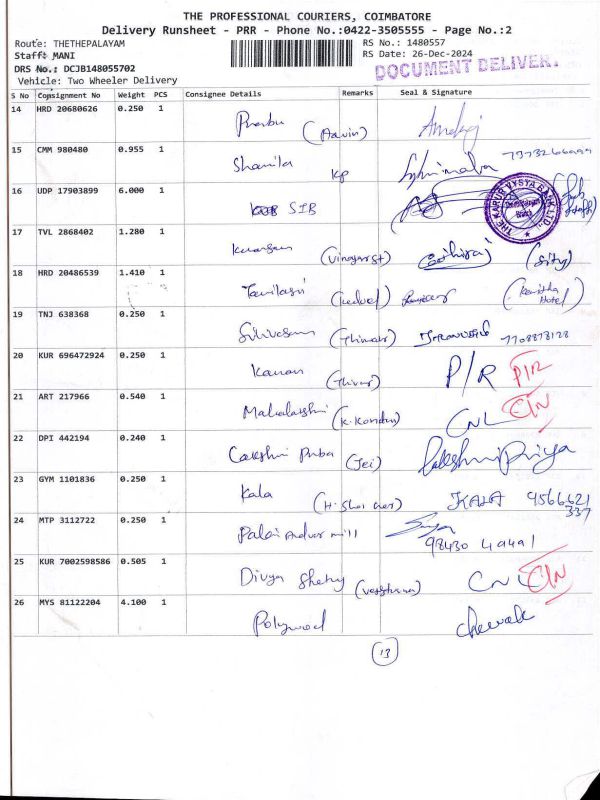 THE PROFESSIONAL COURIERS, COIMBATORE
Delivery Runsheet - PRR - Phone No.:0422-3505555 - Page No.:2
Route: THETHEPALAYAM
RS No.: 1480557
Staff: MANI
RS Date: 26-Dec-2024
DRS No.: DCJB148055702
DOCUMENT DELIVER
Vehicle: Two Wheeler Delivery
S No Consignment No Weight PCS Consignee Details Remarks Seal & Signature
14 HRD 20680626 0.250 1
Prabu (Aravin)
15 CMM 980480 0.955 1
Sharmila KP
16 UDP 17903899 6.000 1
SIB
THE KARUR VYSYA BANK LTD.
17 TVL 2868402 1.280 1
(Vinayagar st) (Sity)
18 HRD 20486539 1.410 1
Tamilasri (Kavitha Hotel)
19 TNJ 638368 0.250 1
Srinivasan 7708878128
20 KUR 696472924 0.250 1
Kannan P/R P/R
21 ART 217966 0.540 1
Mahalakshmi CNL
22 DPI 442194 0.240 1
Lakshmi Priba (Jei) Lakshmi Priya
23 GYM 1101836 0.250 1
Kala KALA 9566621
337
24 MTP 3112722 0.250 1
mill
98430 49491
25 KUR 7002598586 0.505 1
Divya Shetty CNL
26 MYS 81122204 4.100 1
Polywood
13